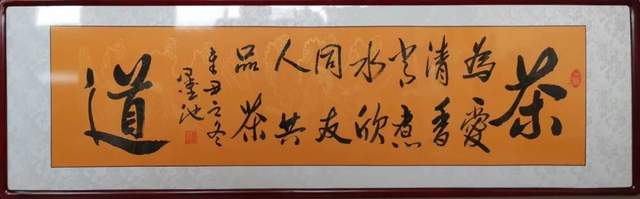 茶
為愛
清香
常煮
水欣
同友
人共
品茶
辛丑之冬
墨池
道